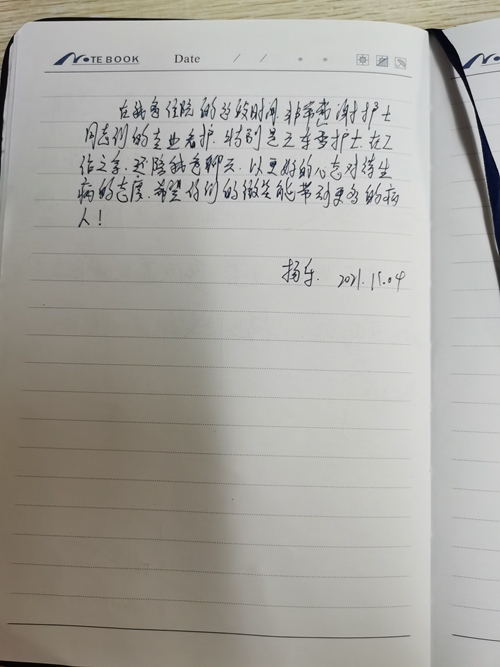 NOTE BOOK Date / /
在我爸住院的这段时间,非常感谢护士
同志们的专业看护.特别是王冬雪护士,在工
作之余,还陪我爸聊天.以更好的心态对待生
病的态度.希望你们的微笑能带到更多的病
人!
杨乐. 2021.11.04